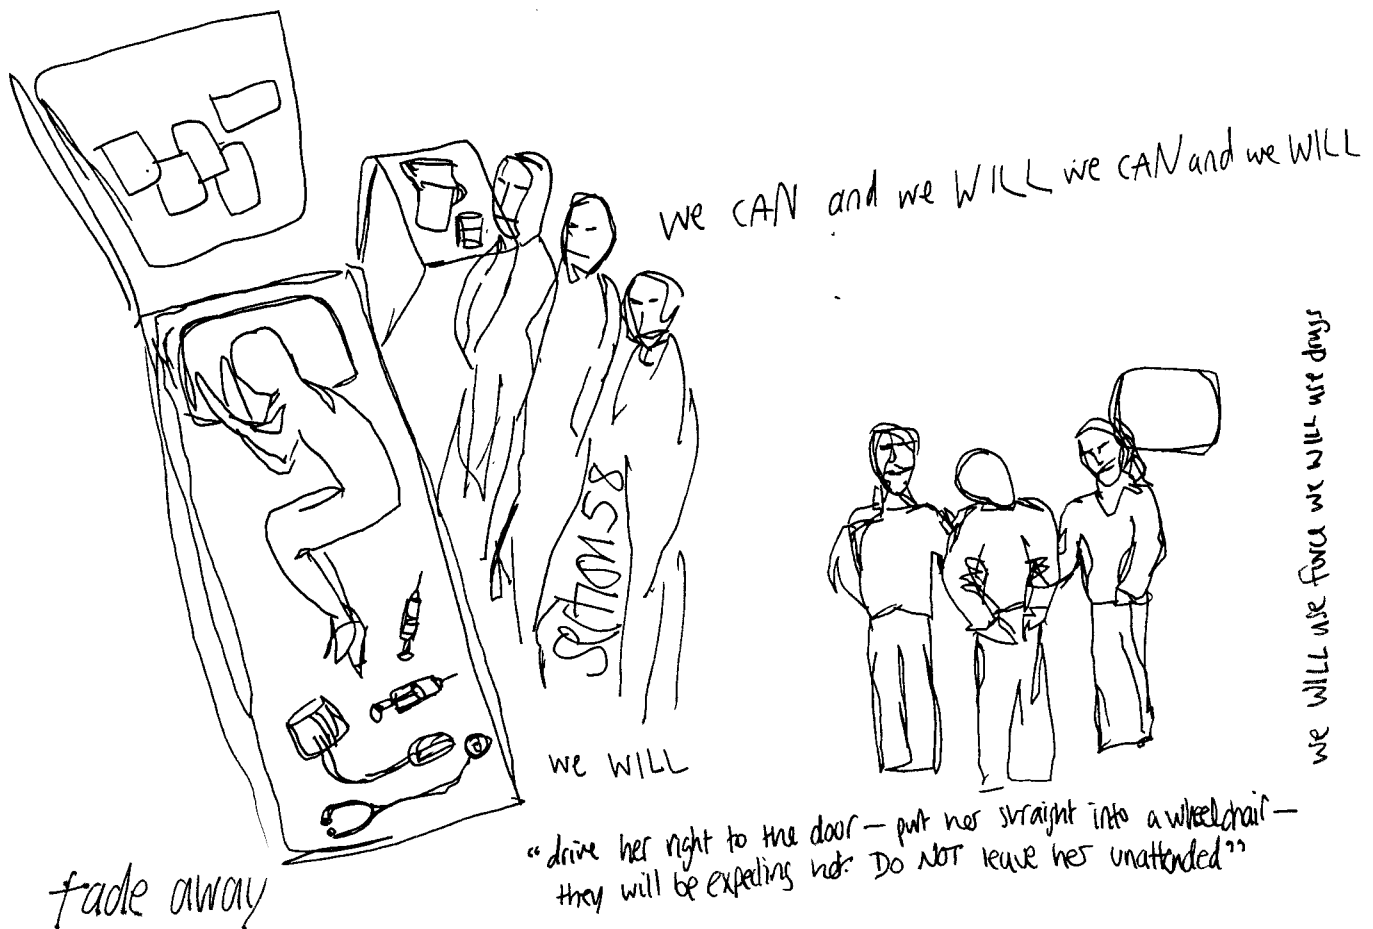 we CAN and we WILL we CAN and we WILL
we WILL use force we WILL use drugs
SECTION 58
we WILL
"drive her right to the door – put her straight into a wheelchair –
they will be expecting her. Do NOT leave her unattended"
fade away